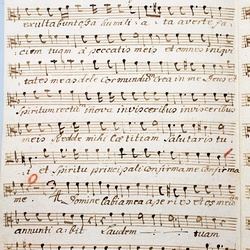 exultabunt ossa humili: a: ta averte fa:
ciem tuam a peccatis meis et omnes iniqui
tates meas dele Cor mundum Crea in me Deus et
Spiritum rectū inova in visceribus in visceribus
meis Redde mihi Lætitiam Salutaris tu
et Spiritu principali confirma me confirma
me Domine labia mea aperies et os me
annunti a: bit Laudem tuam